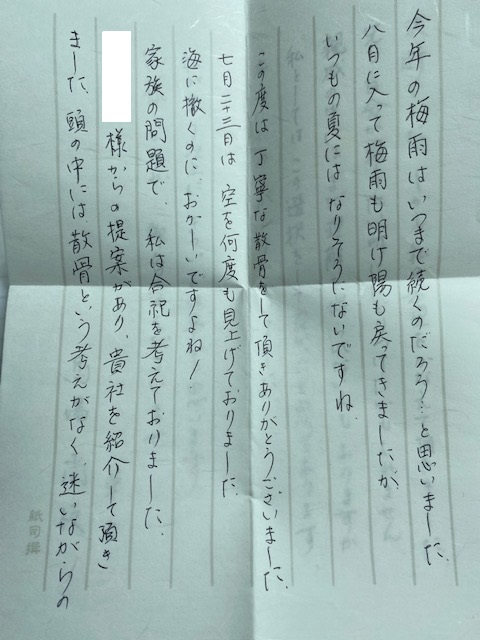 今年の梅雨はいつまで続くのだろう…と思いました。
八月に入って梅雨も明け陽も戻ってきましたが、
いつもの夏には なりそうにないですね。
この度は 丁寧な散骨をして頂きありがとうございました。
七月二十三日は 空を何度も見上げておりました。
海に撒くのに、おかしいですよね!
家族の問題で、私は合祀を考えておりました。
様からの提案があり、貴社を紹介して頂き
ました。頭の中には 散骨という考えがなく、迷いながらの
紙司撰